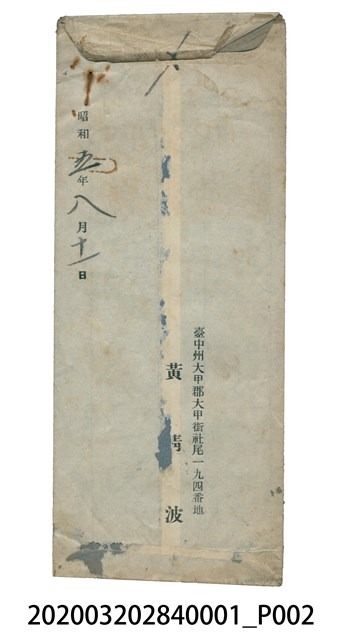 臺中州大甲郡大甲街社尾一九四番地
黃清波
昭和五年八月十一日
202003202840001_P002